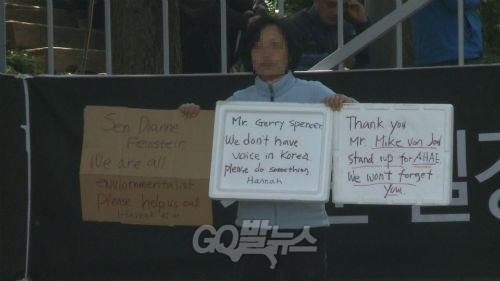 Sen Dianne
Feinstein
We are all
environmentalist
Please help us out
Hannah
Mr. Gerry Spencer
We don't have
voice in Korea
please do something.
Hannah
Thank you
Mr. Mike Von
stand up for AHAE
We won't forget
you.
GO발뉴스